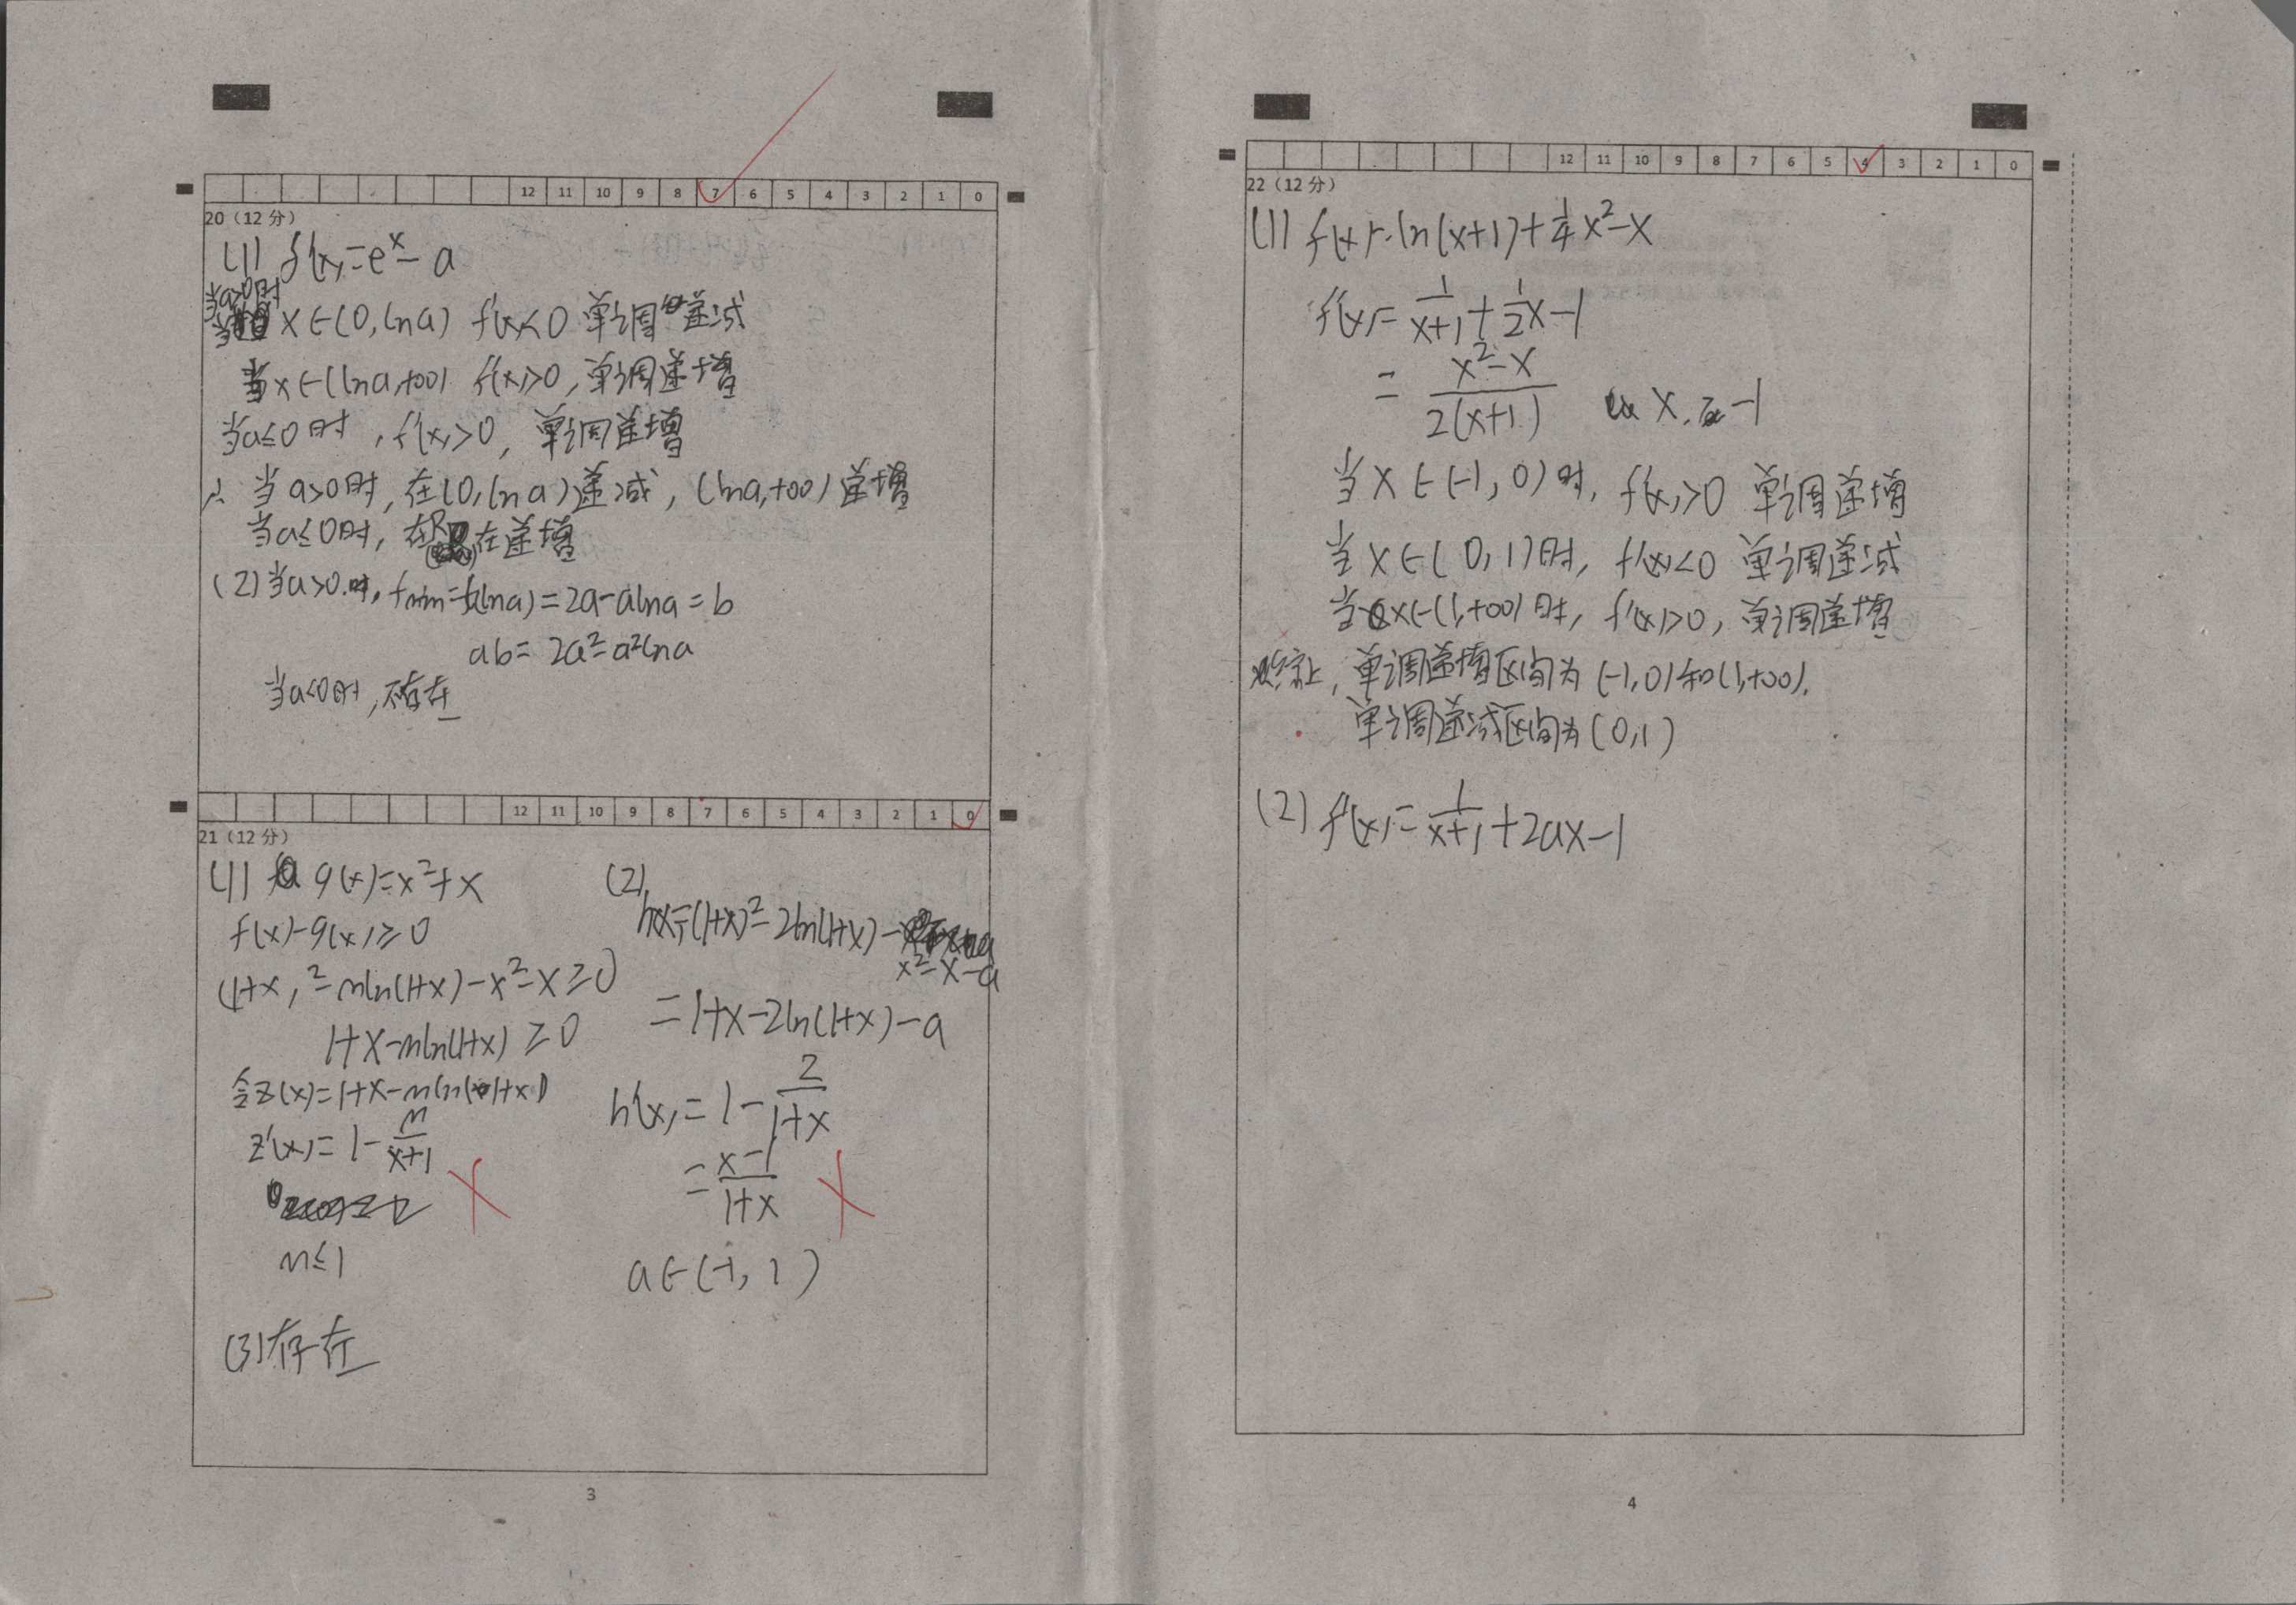 12 11 10 9 8 7 6 5 4 3 2 1 0
20（12 分）
(1) f'(x)=e^x-a
当a>0时
x∈(0,lna) f'(x)<0 单调递减
当x∈(lna,+∞) f'(x)>0,单调递增
当a≤0时,f'(x)>0,单调递增
∴ 当a>0时,在(0,lna)递减,(lna,+∞)递增
当a≤0时,在R在递增
(2)当a>0时,fmin=f(lna)=2a-alna=b
ab=2a²-a²lna
当a<0时,不存在
12 11 10 9 8 7 6 5 4 3 2 1 0
21（12 分）
(1) g(x)=x²+x
f(x)-g(x)≥0
(1+x)²-mln(1+x)-x²-x≥0
1+x-mln(1+x)≥0
令z(x)=1+x-mln(1+x)
z'(x)=1-m/(x+1)
m≤1
(3)存在
(2)
h(x)=(1+x)²-2ln(1+x)-
x²-x-a
=1+x-2ln(1+x)-a
h'(x)=1-2/(1+x)
=(x-1)/(1+x)
a∈(-1,1)
3
12 11 10 9 8 7 6 5 4 3 2 1 0
22（12 分）
(1) f(x)=ln(x+1)+1/4x²-x
f'(x)=1/(x+1)+1/2x-1
=(x²-x)/(2(x+1))
当x∈(-1,0)时,f'(x)>0 单调递增
当x∈(0,1)时,f'(x)<0 单调递减
当x∈(1,+∞)时,f'(x)>0,单调递增
综上,单调递增区间为(-1,0)和(1,+∞).
单调递减区间为(0,1)
(2) f'(x)=1/(x+1)+2ax-1
4